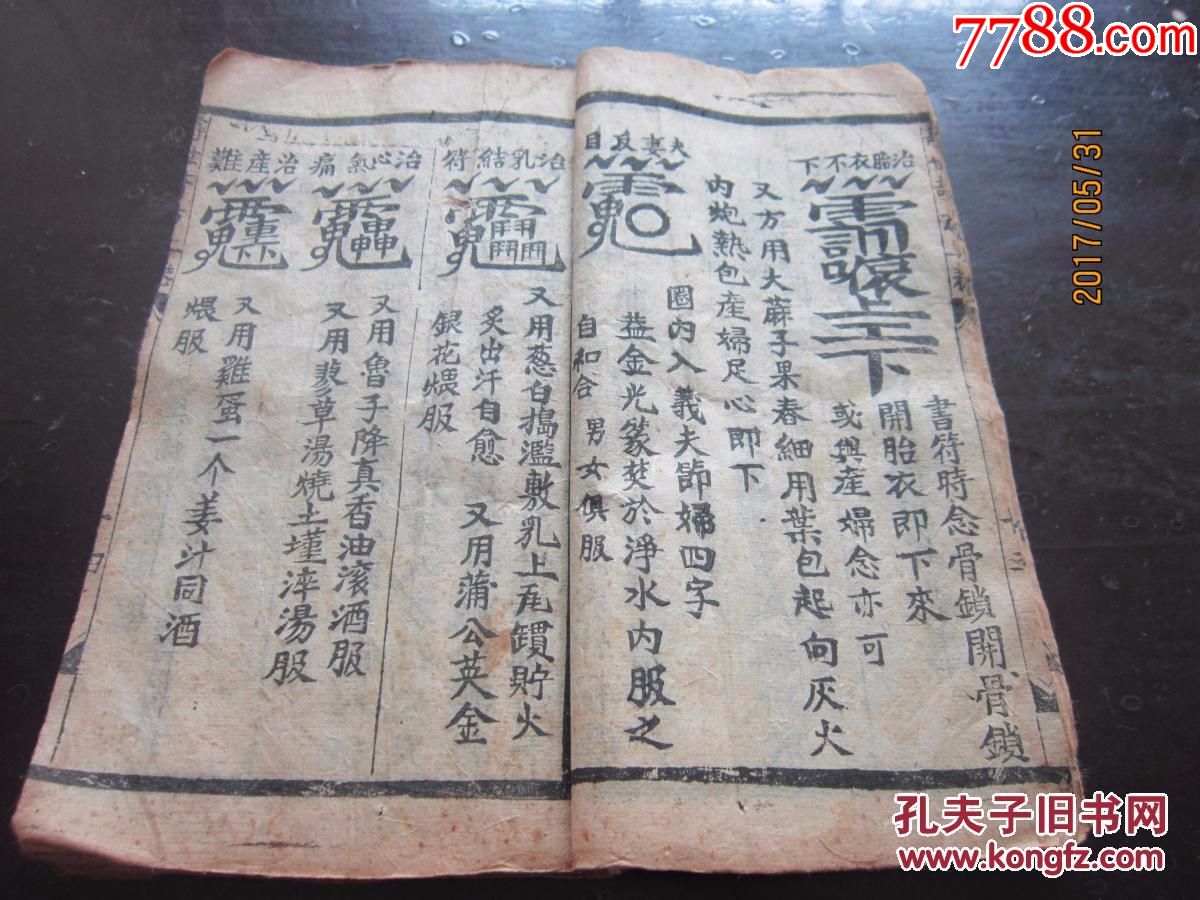 7788.com
2017/05/31
治胎衣不下
書符時念骨鎖開骨鎖
開胎衣即下來
或與產婦念亦可
又方用大蔴子果舂細用葉包起向灰火
內炮熱包產婦足心即下
夫妻反目
圈內入義夫節婦四字
益金光篆焚於淨水內服之
自和合 男女俱服
治乳結符
又用葱白搗濫敷乳上瓦鑵貯火
炙出汗自愈 又用蒲公英金
銀花煨服
治心氣痛
又用魯子降真香油滾酒服
又用草湯燒土墐淬湯服
治產難
又用雞蛋一个姜汁同酒
煨服
孔夫子旧书网
www.kongfz.com